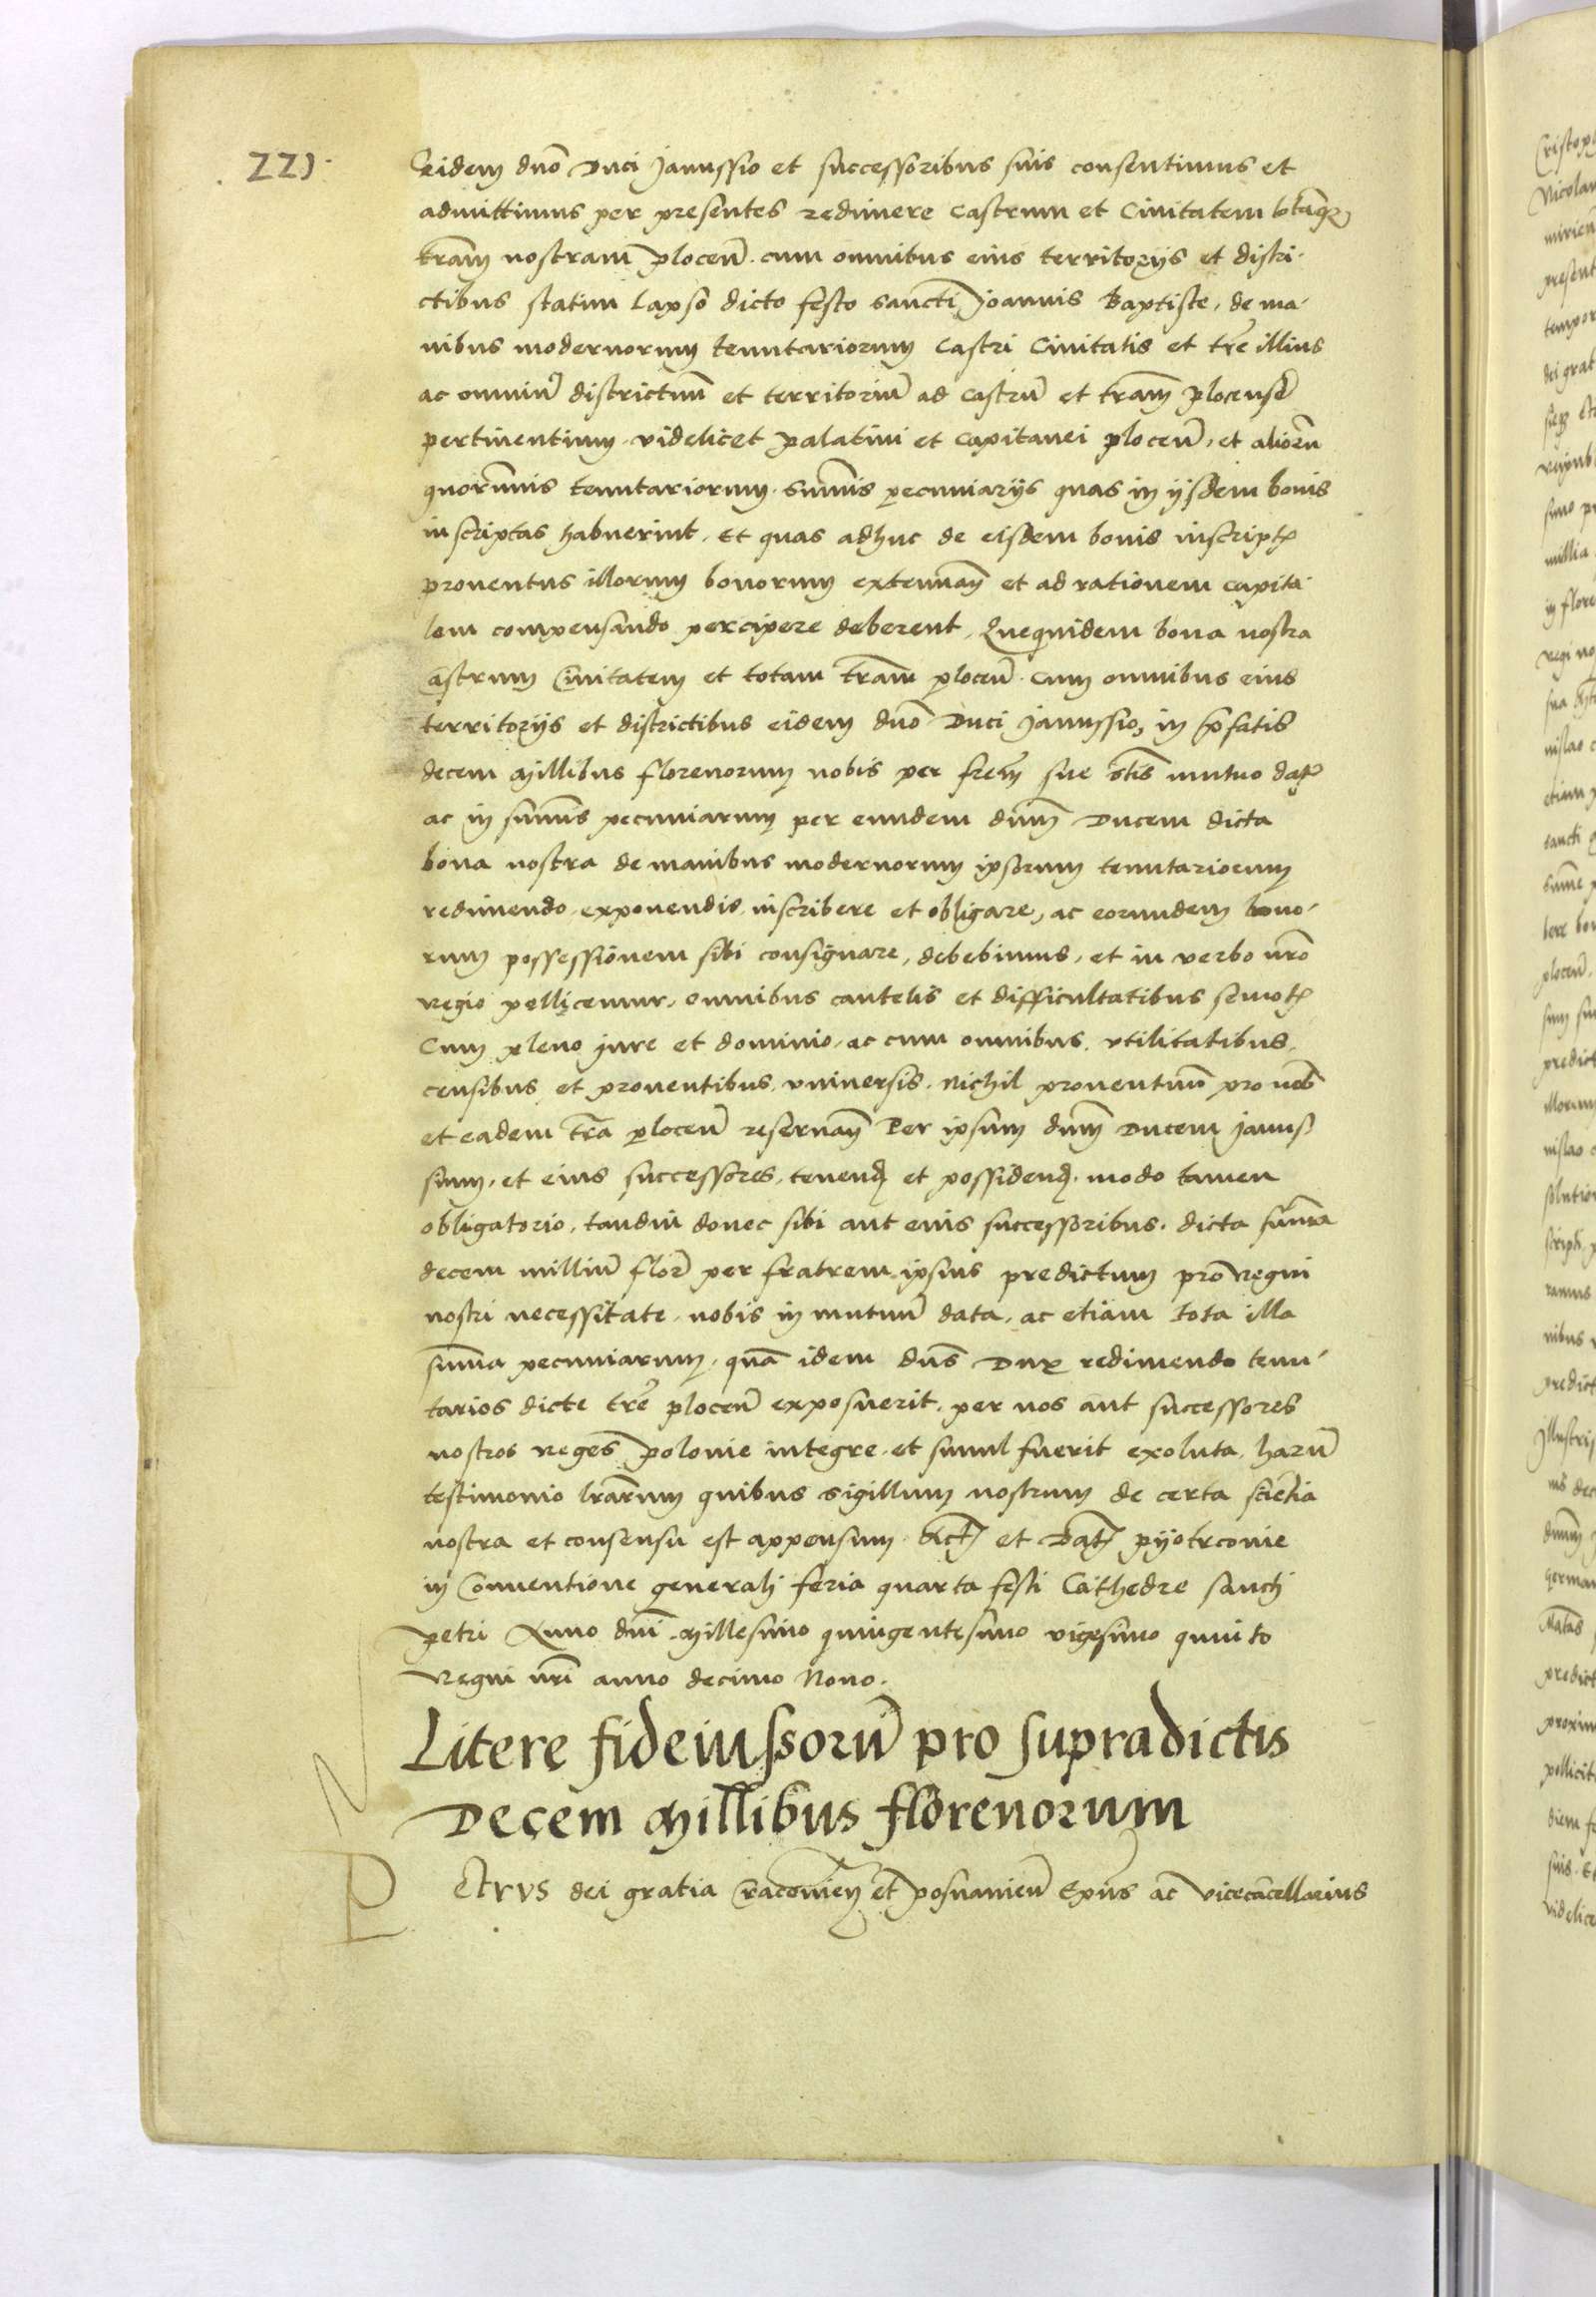 221.
Eidem dno Duci Janussio et successoribus suis consentimus et
admittimus per presentes redimere Castrum et Civitatem totamqz
tram nostram plocen. cum omnibus eius territoriis et distri-
ctibus statim lapso dicto festo sancti Joannis Baptiste, de ma-
nibus modernorum tenutariorum Castri Civitatis et tre illius
ac omniu districtuum et territoriu ad castru et tram plocense
pertinentium. videlicet palatini et Capitanei plocen, et alioru
quorumuis tenutariorum. summis pecuniariis quas in ijsdem bonis
inscriptas habuerint. Et quas adhuc de eisdem bonis inscript
prouentus illorum bonorum extenuan et ad rationem capita-
lem compensando percipere deberent, Quequidem bona nostra
castrum Civitatem et totam tram plocen. cum omnibus eius
territorijs et districtibus eidem dno Duci Janussio, in prfatis
decem Millibus florenorum nobis per frem sue mutuo dat
ac in summis pecuniarum per eundem dnm Ducem dicta
bona nostra de manibus modernorum ipsorum tenutariorum
redimendo exponendis inscribere et obligare, ac eorundem bono-
rum possessionem sibi consignare, debebimus, et in verbo nro
Regio pollicemur, omnibus cautelis et difficultatibus semot
Cum pleno jure et dominio, ac cum omnibus. vtilitatibus.
censibus et prouentibus vniuersis. Nichil prouentuum pro nob
et eadem tra plocen reseruan Per ipsum dnm Ducem Janus-
sium, et eius successores, tenend et possidend. modo tamen
obligatorio, tamdiu donec sibi aut eius successoribus. dicta summa
decem milliu flor per fratrem ipsius predictum pro Regni
nostri necessitate, nobis in mutuu data, ac etiam tota illa
summa pecuniarum, qua idem dns Dux redimendo tenu-
tarios dicte tre plocen exposuerit, per nos aut successores
nostros Reges Polonie integre et simul fuerit exoluta, haru
testimonio lrarum quibus sigillum nostrum de certa scietia
nostra et consensu est appensum. Act et Dat pyotrconie
in Conuentione generali feria quarta festi Cathedre sancti
petri Anno dni Millesimo quingentesimo vigesimo quinto
Regni nri anno decimo Nono.
Litere fideiussoru pro supradictis
Decem Millibus florenorum
PEtrvs dei gratia Cracouien et posnanien Epus ac vicecacellarius